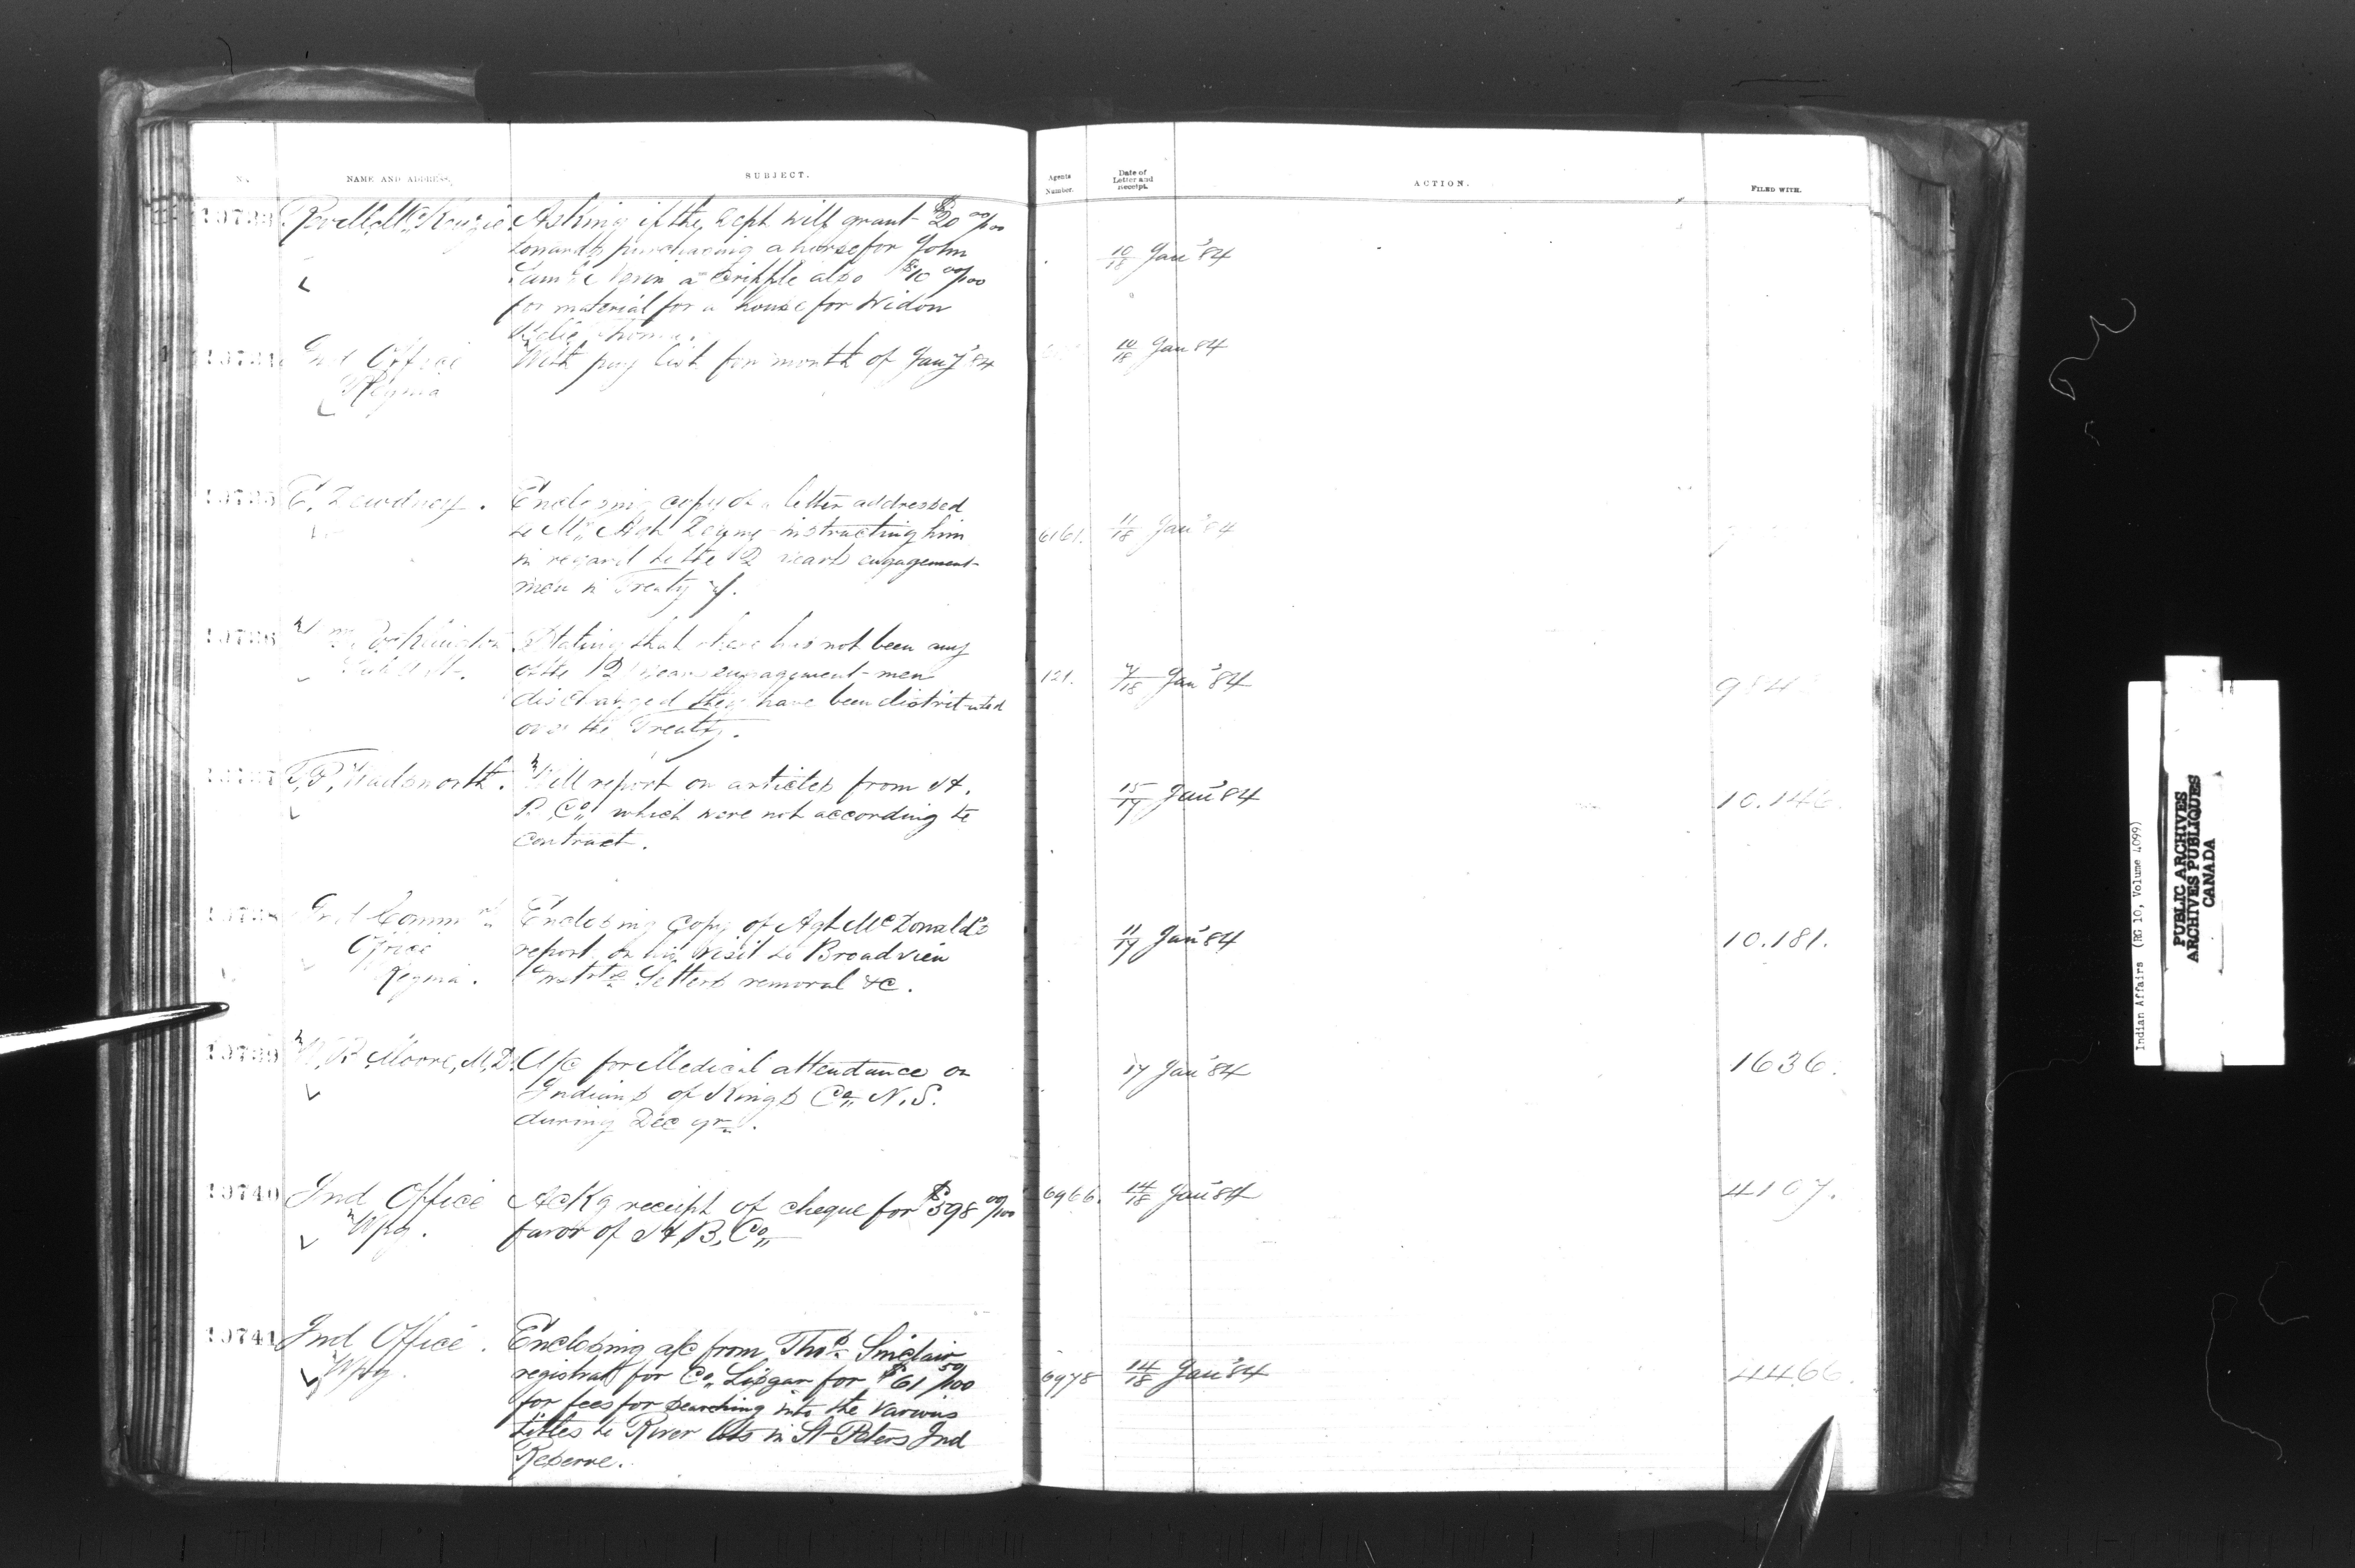 No.
NAME AND ADDRESS.
SUBJECT.
Agents
Number.
Date of
Letter and
receipt.
ACTION.
FILED WITH.
Asking if the Dept will grant $20 00/100
towards purchasing a horse for John
a cripple also $10 00/100
for material for a house for Widow
10/18 Jany '84
Ind Office
Regina
With pay list for month of Jany '84
10/18 Jany 84
E. Dewdney.
Enclosing copy of a letter addressed
to Mr Agt instructing him
in regard to the 12 years engagement
men in Treaty 7.
6161.
11/18 Jany '84
Stating that there has not been any
of the 12 years engagement men
discharged they have been distributed
over the Treaty.
121.
Jany '84
T.P. Wadsworth.
Will report on articles from H.
B. Co. which were not according to
contract.
15/17 Jany '84
Ind Commrs
Office
Regina.
Enclosing copy of Agt McDonald's
report on his visit to Broadview
Settlers removal &c.
Jany '84
10.181.
Moore, M.D.
A/c for Medical attendance on
Indians of Kings Co. N.S.
during Dec
17 Jany '84
1636.
10740
Ind Office
Wpg.
Ackg receipt of cheque for $598 00/100
favor of H.B. Co.
6966.
14/18 Jany '84
4107.
10741
Ind Office.
Wpg.
Enclosing a/c from Thos. Sinclair
registrar for Co. Lisgar for $61 50/100
for fees for searching into the various
titles to River lots in St Peters Ind
Reserve.
6978
14/18 Jany '84
4466.
Indian Affairs (RG 10, Volume 4099)
PUBLIC ARCHIVES
ARCHIVES PUBLIQUES
CANADA